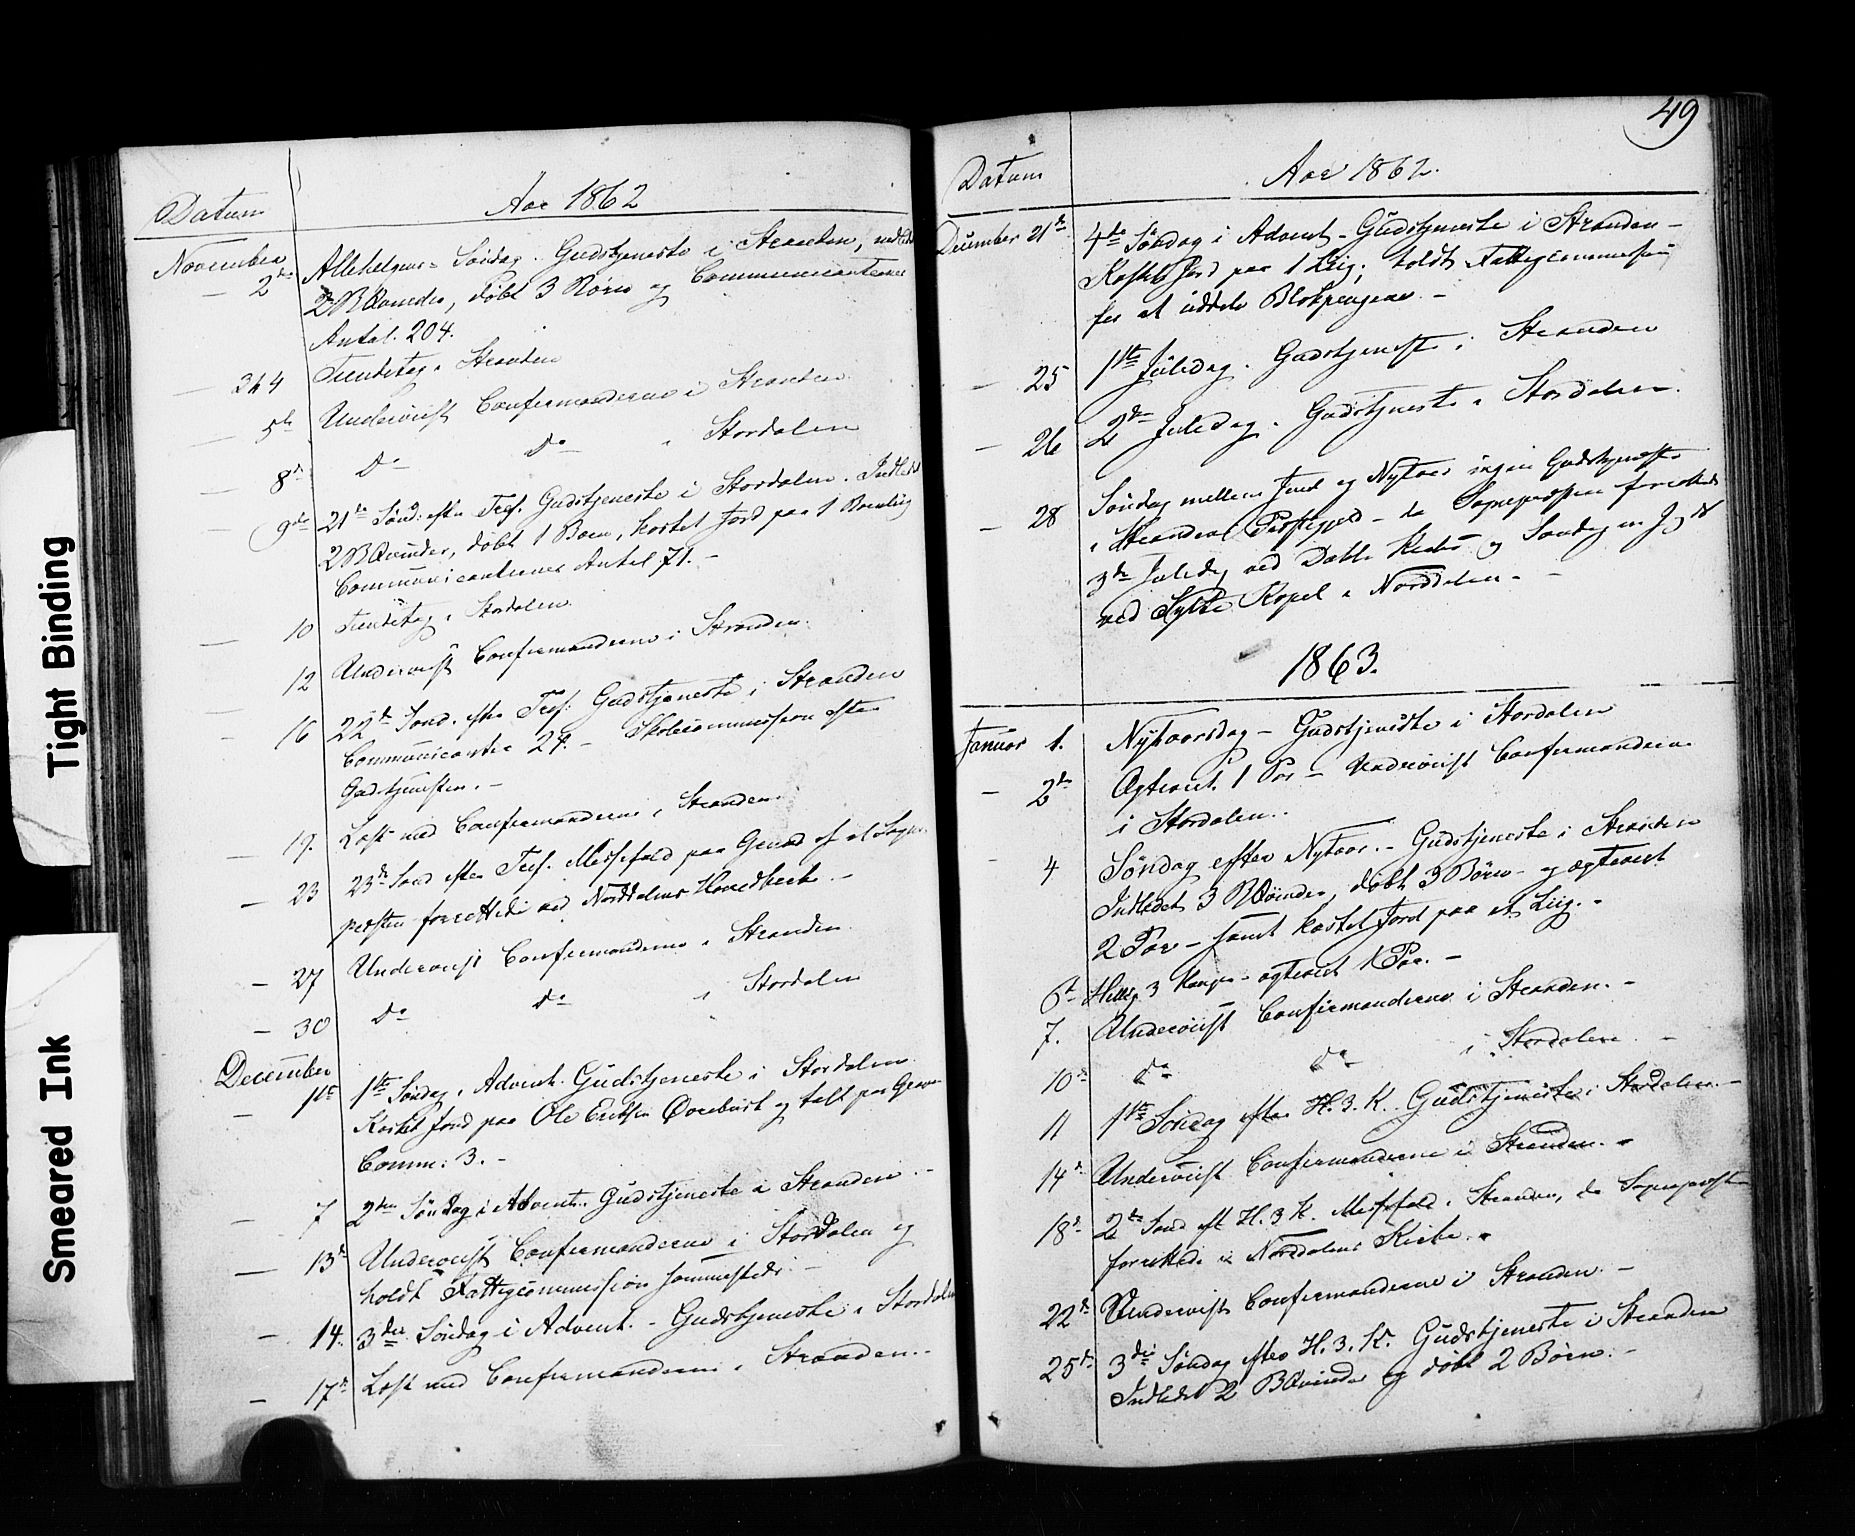 Datum
Aar 1862
November
2de Allehelgens Søndag. Gudstjeneste i Stranden,
2 BQvinder, døbt 3 Børn og Communicanternes
Antal. 204.
— 3&4 Tiendetag i Stranden
— 5te Underviist Confirmanderne i Stranden
— 8de do do i Stordalen
— 9de 21de Sønd. efter Tref. Gudstjeneste i Stordalen. Indledet
2 BQvinder, døbt 1 Barn, kastet Jord paa 1
Communicanternes Antal 71. -
— 10 Tiendetag i Stordalen.
— 12 Underviist Confirmanderne i Stranden.
— 16 22de Sønd. efter Tref. Gudstjeneste i Stranden
Communicanter 24. - Skolecommission efter
Gudstjenesten. -
— 19. Læst med Confirmanderne i Stranden.
— 23 23de Sønd efter Tref. Messefald paa Grund af at Sogne-
præsten forrettede ved Norddalens Hovedkirke. -
— 27 Underviist Confirmanderne i Stranden.
— 30 do do i Stordalen
December
— 1ste 1ste Søndag i Advent. Gudstjeneste i Stordalen
Kastet Jord paa Ole Eriksen og talt paa Graven
Comm: 3. -
— 7 2den Søndag i Advent. Gudstjeneste i Stranden. -
— 13de Underviist Confirmanderne i Stordalen og
holdt Fattigcommission sammesteds. -
— 14. 3die Søndag i Advent. - Gudstjeneste i Stordalen
— 17de Læst med Confirmanderne i Stranden. -
49
Datum
Aar 1862.
December 21de 4de Søndag i Advent - Gudstjeneste i Stranden -
Kastet Jord paa 1 Liig; holdt Fattigcommission
for at uddele Blokpengene. -
— 25 1ste Juledag. Gudstjeneste i Stranden
— 26 2den Juledag. Gudstjeneste i Stordalen.
— 28 Søndag mellem Juul og Nytaar ingen Gudstjeneste
i Strandens Præstegjeld - da Sognepræsten forrettede
3de Juledag ved Dahle Kirke og Søndagen
ved Sylte Kapel i Norddalen. -
1863.
Januar 1. Nytaarsdag - Gudstjeneste i Stordalen
— 2de Ægteviet 1 Par - Underviist Confirmanderne
i Stordalen.
— 4 Søndag efter Nytaar. - Gudstjeneste i Stranden
Indledet 3 BQvinder, døbt 3 Børn - og ægteviet
2 Par - samt kastet Jord paa et Liig. -
6te Hellig 3 Konger - ægteviet 1 Par. -
7. Underviist Confirmanderne i Stranden. -
10de do do i Stordalen. -
11 1ste Søndag efter H. 3. K. Gudstjeneste i Stordalen. -
14de Underviist Confirmanderne i Stranden. -
18de 2de Sønd eft H. 3 K. Messefald i Stranden, da Sognepræsten
forrettede i Norddalens Kirke. -
22de Underviist Confirmanderne i Stranden. -
25de 3die Søndag efter H. 3. K. Gudstjeneste i Stranden
Indledet 2 BQvinder og døbt 2 Børn. -
Tight Binding
Smeared Ink